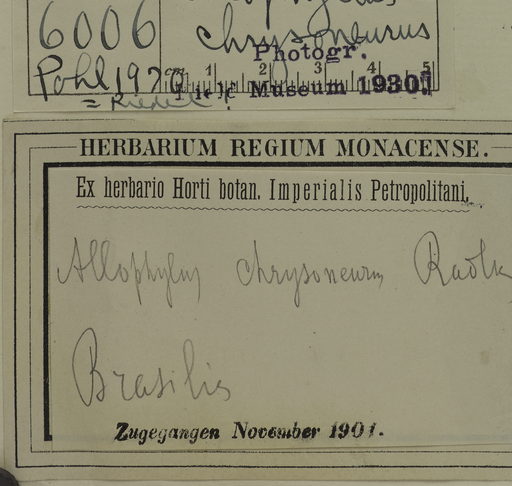 6006 chrysoneurus
Photogr.
Pohl
1 2 3 4 5
Museum 1930
= Riedel
HERBARIUM REGIUM MONACENSE.
Ex herbario Horti botan. Imperialis Petropolitani.
Allophylus chrysoneurus Radlk
Brasilia
Zugegangen November 1901.